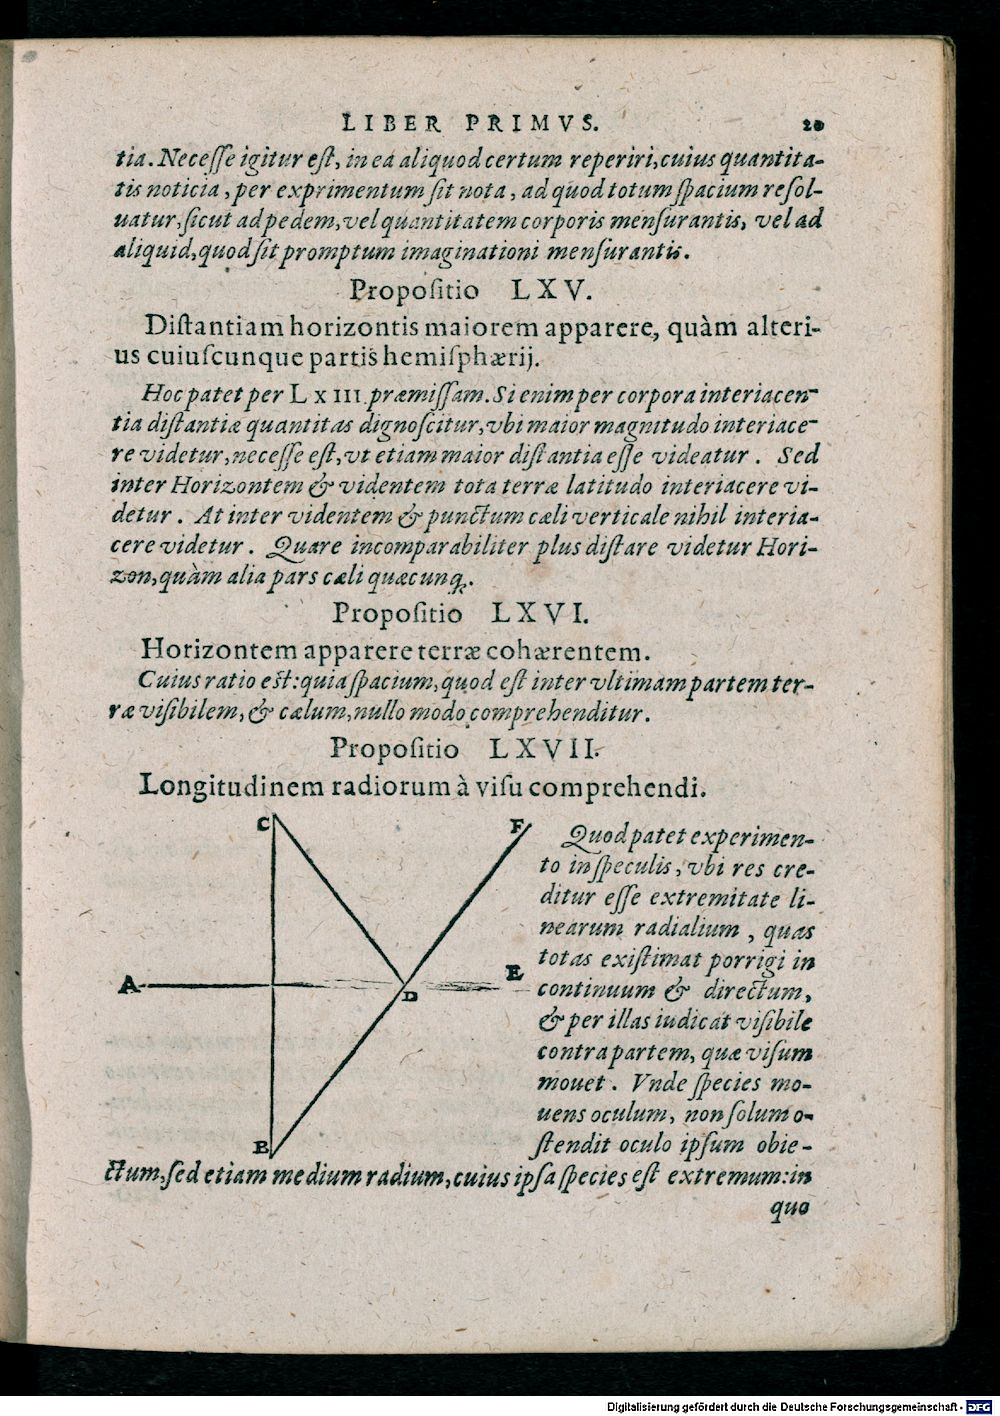 LIBER PRIMVS. 20
tia. Neceſſe igitur eſt, in ea aliquod certum reperiri, cuius quantita-
tis noticia, per exprimentum ſit nota, ad quod totum ſpacium reſol-
uatur, ſicut ad pedem, vel quantitatem corporis menſurantis, vel ad
aliquid, quod ſit promptum imaginationi menſurantis.
Propoſitio LXV.
Diſtantiam horizontis maiorem apparere, quàm alteri-
us cuiuſcunque partis hemiſphærij.
Hoc patet per LXIII præmiſſam. Si enim per corpora interiacen-
tia diſtantiæ quantitas dignoſcitur, vbi maior magnitudo interiace-
re videtur, neceſſe eſt, vt etiam maior diſtantia eſſe videatur. Sed
inter Horizontem & videntem tota terræ latitudo interiacere vi-
detur. At inter videntem & punctum cæli verticale nihil interia-
cere videtur. Quare incomparabiliter plus diſtare videtur Hori-
zon, quàm alia pars cæli quæcunq;.
Propoſitio LXVI.
Horizontem apparere terræ cohærentem.
Cuius ratio eſt: quia ſpacium, quod eſt inter vltimam partem ter-
ræ viſibilem, & cælum, nullo modo comprehenditur.
Propoſitio LXVII.
Longitudinem radiorum à viſu comprehendi.
C
F
A
D
E
B
Quod patet experimen-
to in ſpeculis, vbi res cre-
ditur eſſe extremitate li-
nearum radialium, quas
totas exiſtimat porrigi in
continuum & directum,
& per illas iudicat viſibile
contra partem, quæ viſum
mouet. Vnde ſpecies mo-
uens oculum, non ſolum o-
ſtendit oculo ipſum obie-
ctum, ſed etiam medium radium, cuius ipſa ſpecies eſt extremum: in
quo
Digitalisierung gefördert durch die Deutsche Forschungsgemeinschaft - DFG